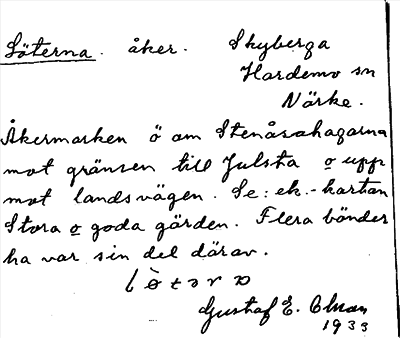 Söterna. åker. Skyberga
Hardemo sn
Närke.
Åkermarken ö om Stenåsahagarna
mot gränsen till Julsta o upp
mot landsvägen. Se: ek.-kartan
Stora o goda gärden. Flera bönder
ha var sin del därav.
Gustaf E. Olsson
1933